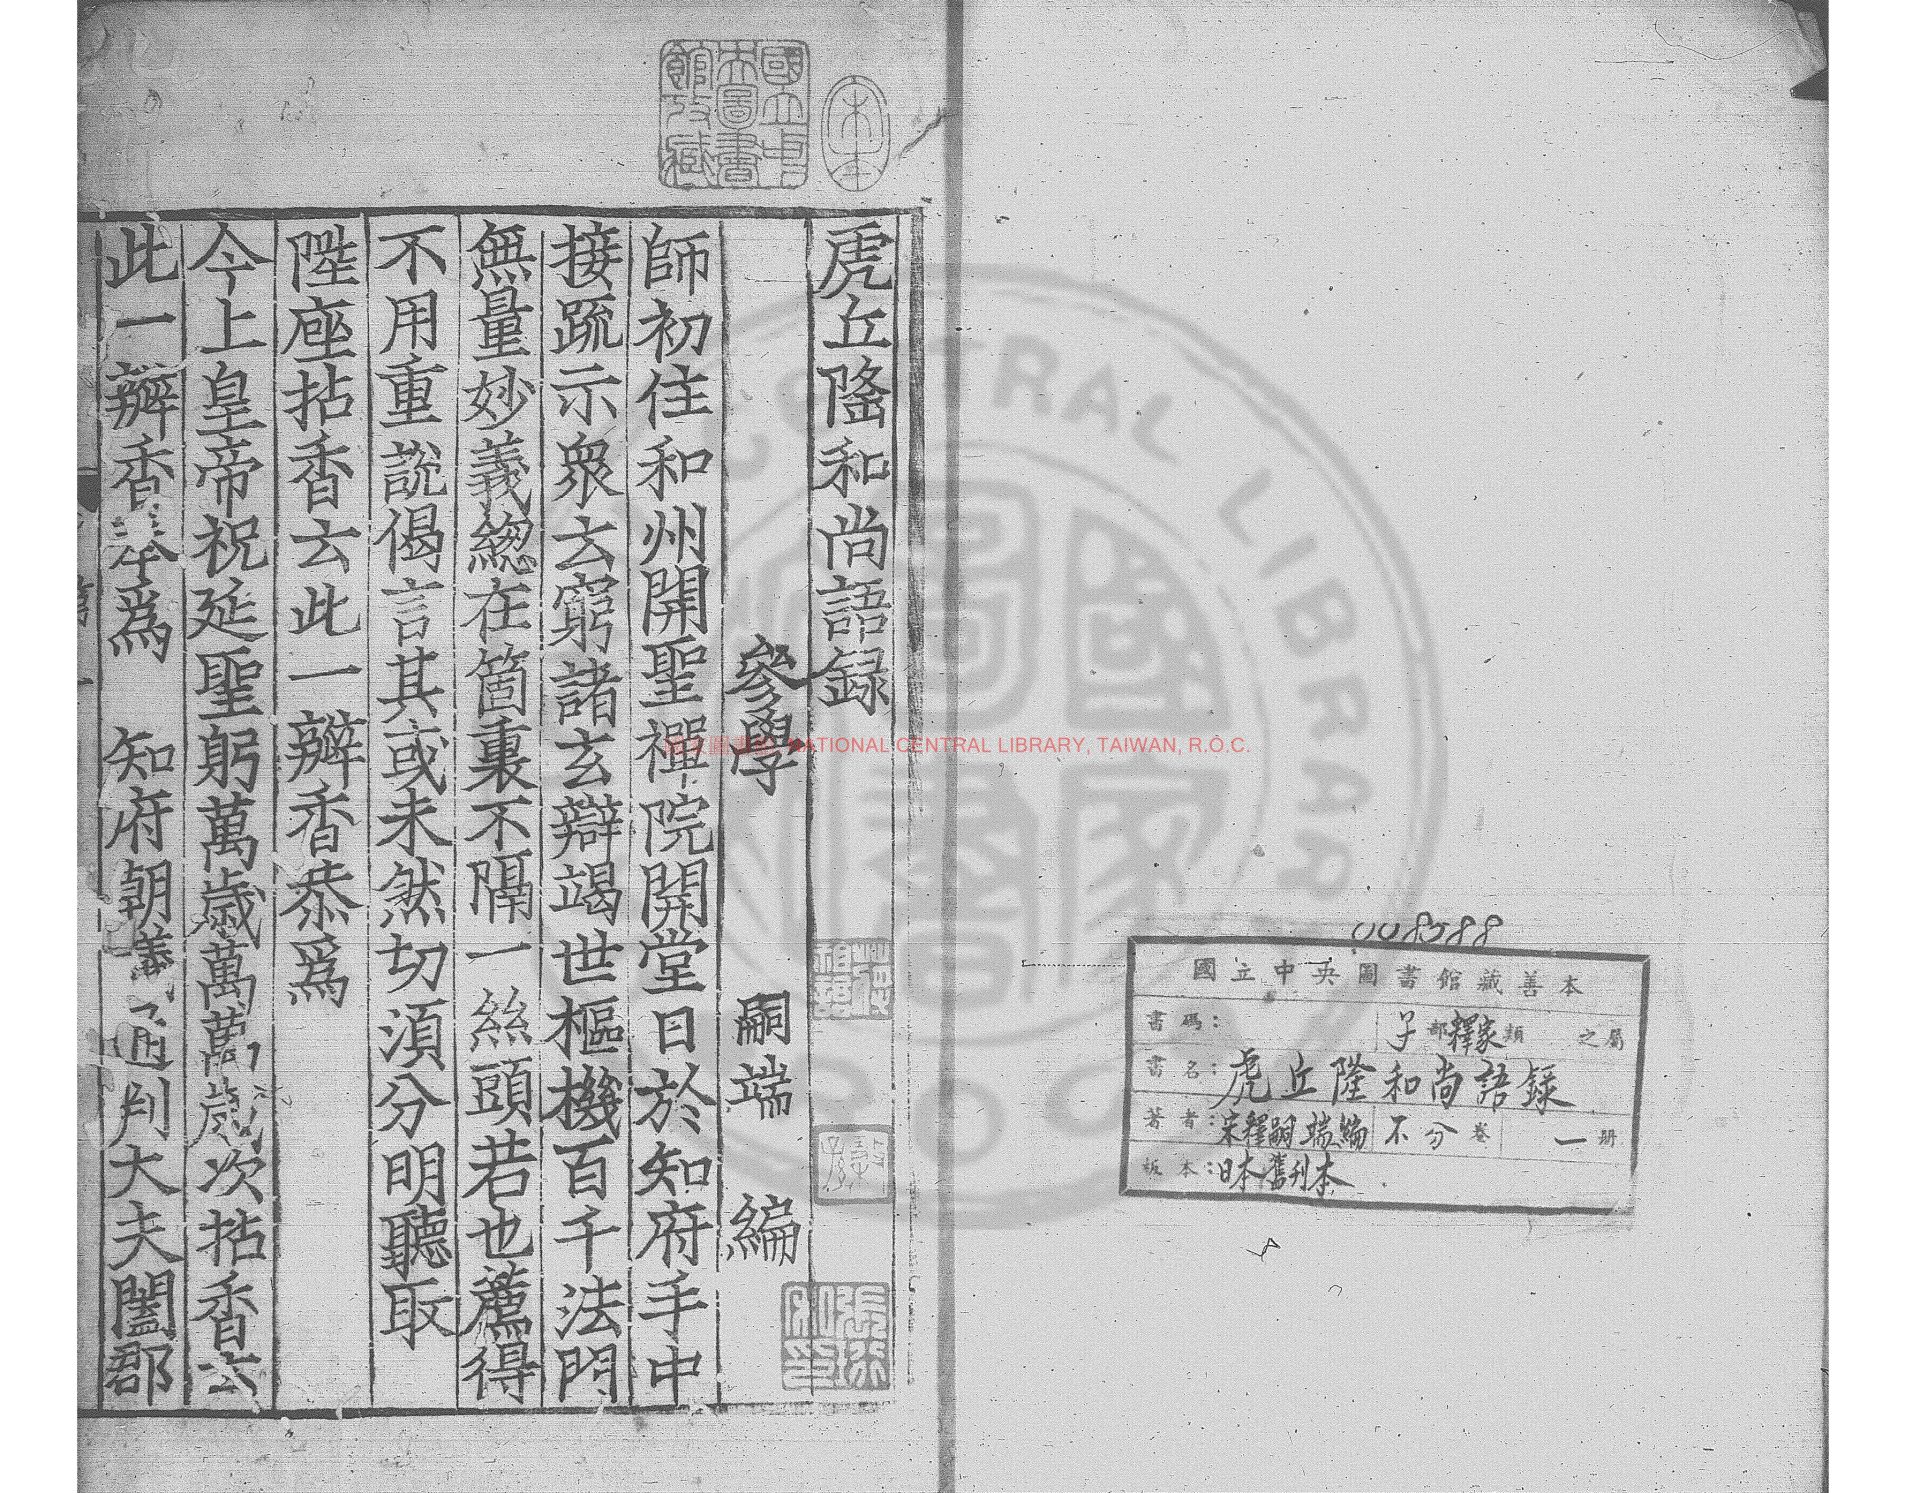 008588
國立中央圖書館藏善本
書碼： 子部釋家類 之屬
書名：虎丘隆和尚語錄
著者：宋釋嗣端編 不分卷 一册
板本：日本舊刊本
國立中央圖書館收藏
虎丘隆和尚語録
參學 嗣端 編
師初住和州開聖禪院開堂日於知府手中
接䟽示衆云窮諸玄辯竭世樞機百千法門
無量妙義緫在箇裏不隔一絲頭若也薦得
不用重説偈言其或未然切須分明聽取
陞座拈香云此一瓣香恭爲
今上皇帝祝延聖躬萬歲萬萬歲次拈香云
此一瓣香奉爲 知府朝議通判大夫闔郡
NATIONAL CENTRAL LIBRARY, TAIWAN, R.O.C.